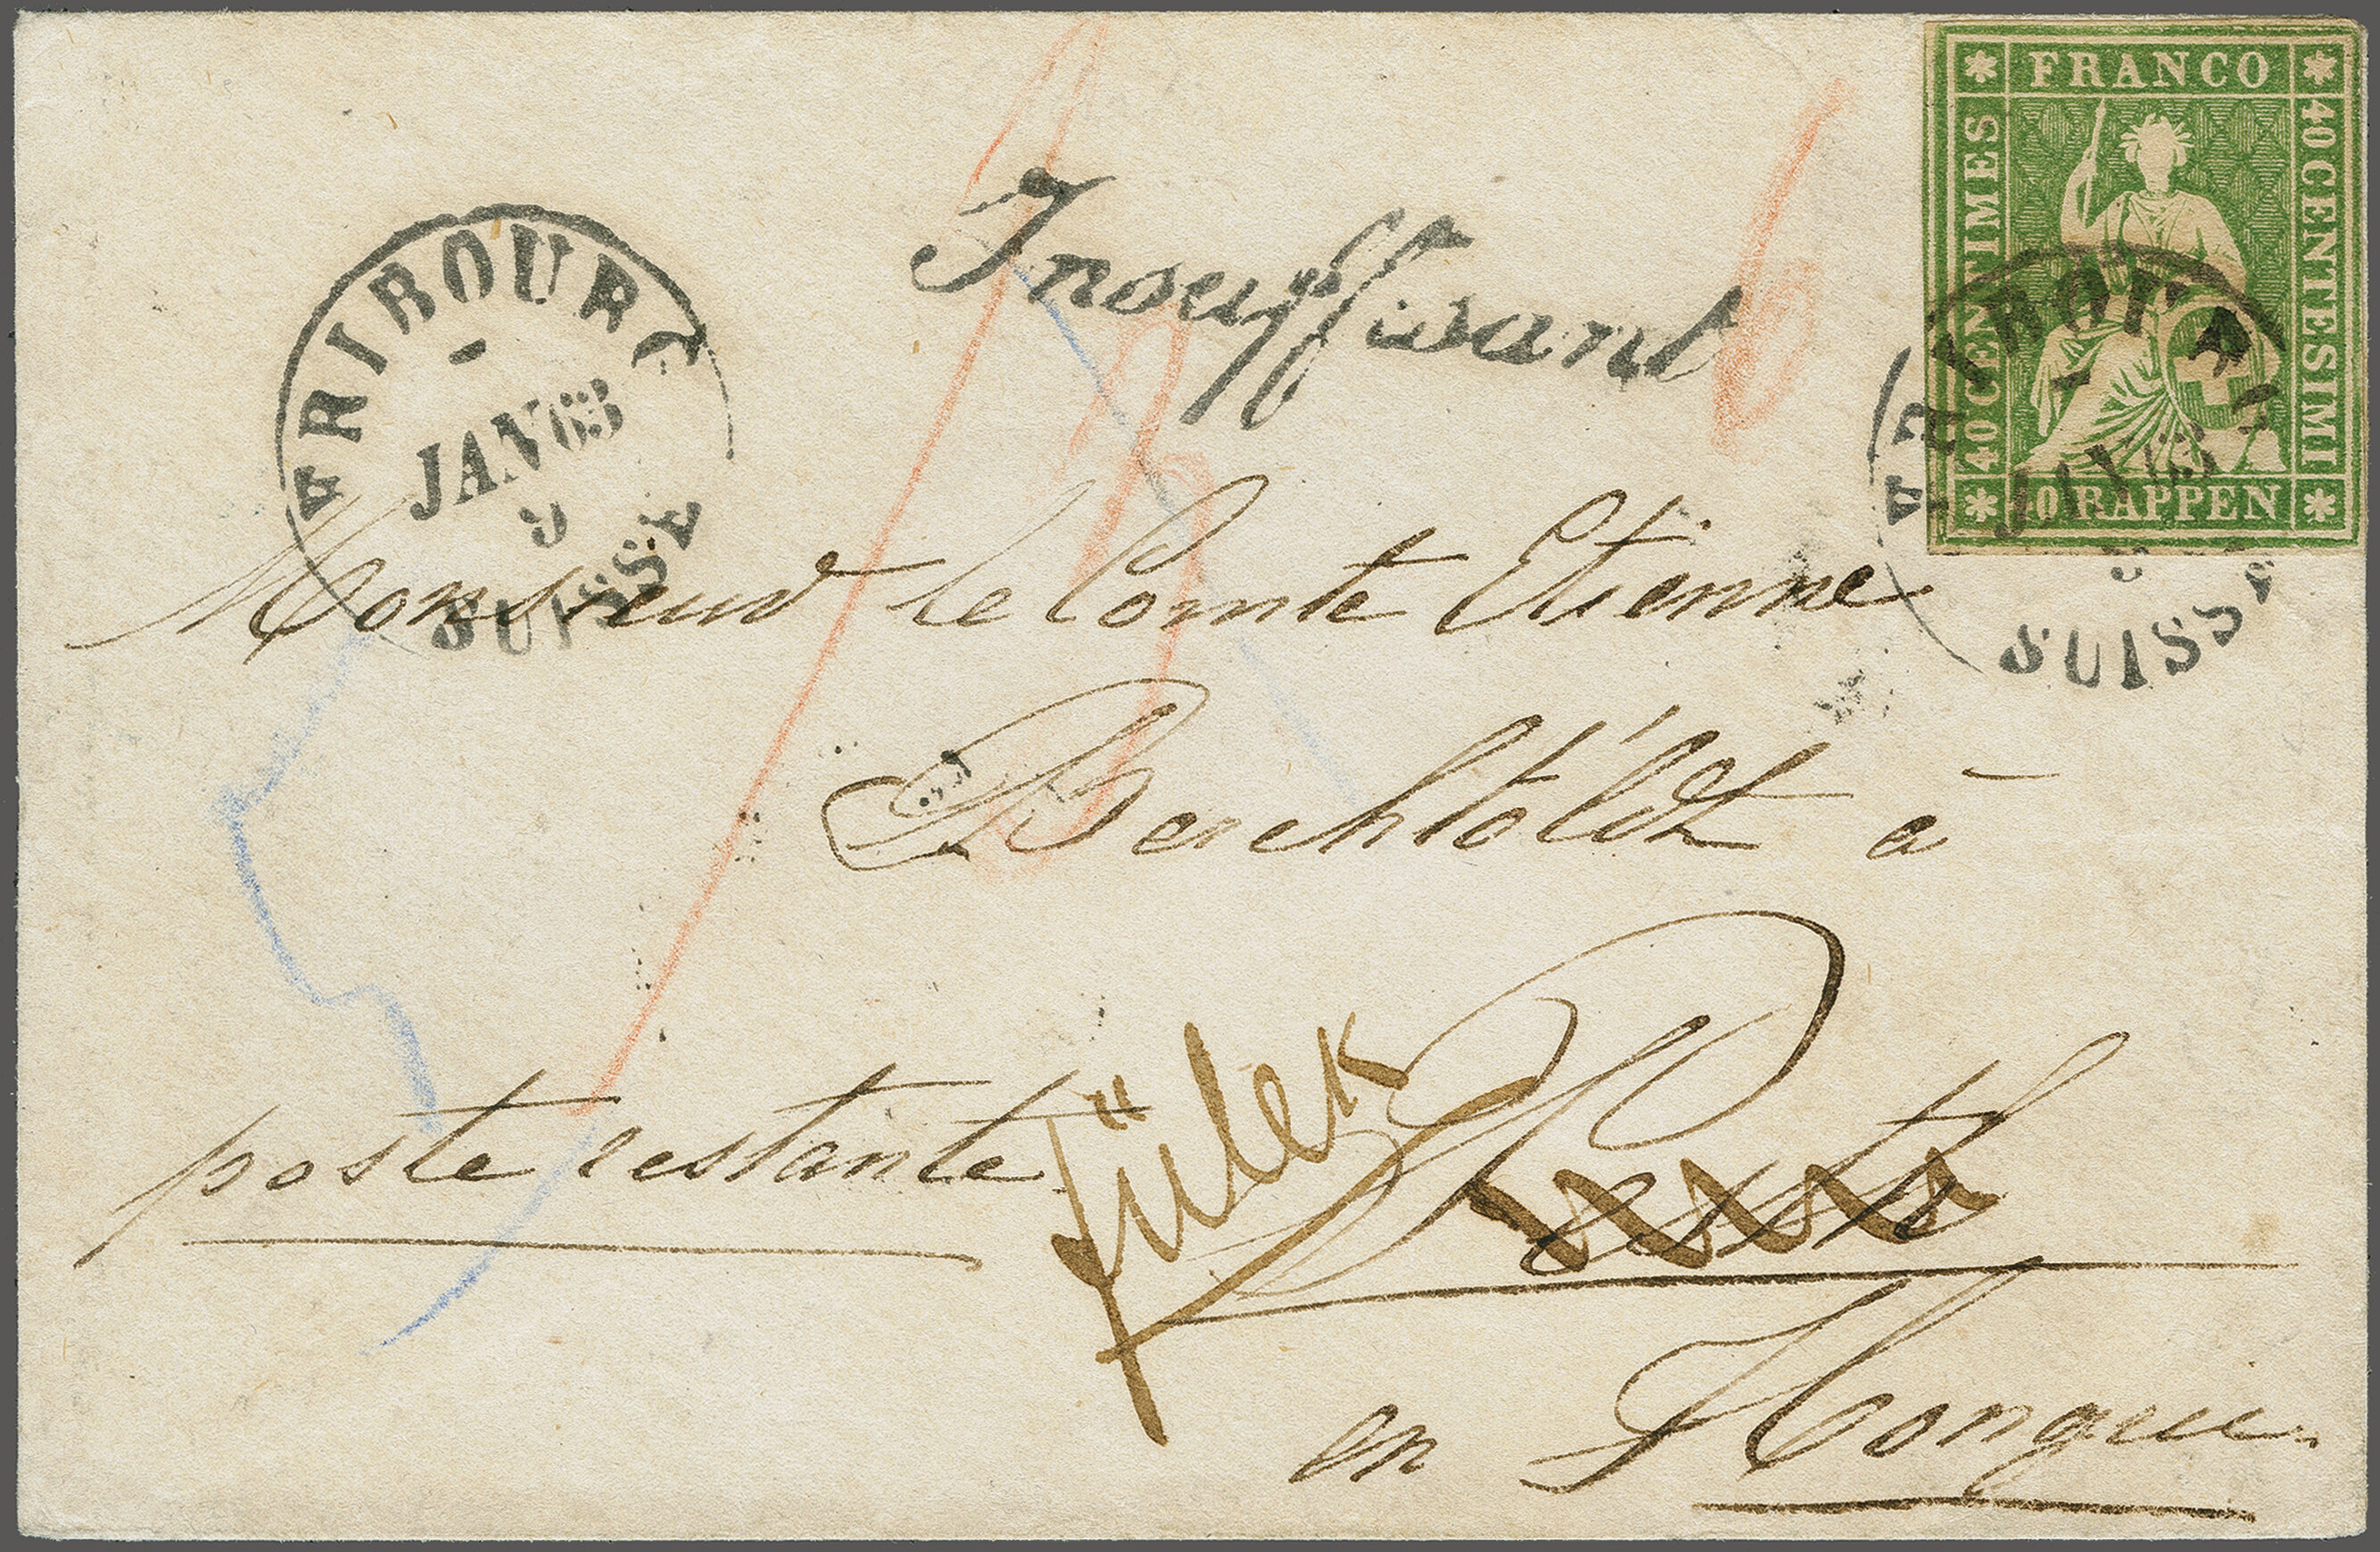 FRANCO
40 CENTIMES
40 CENTESIMI
40 RAPPEN
FRIBOURG
JAN 63
9
SUISSE
Insuffisant
FRIBOURG
JAN 63
9
SUISSE
Monsieur le Comte Etienne
Berchtoldt à
poste restante
Fülek
Pesth
en Hongrie.